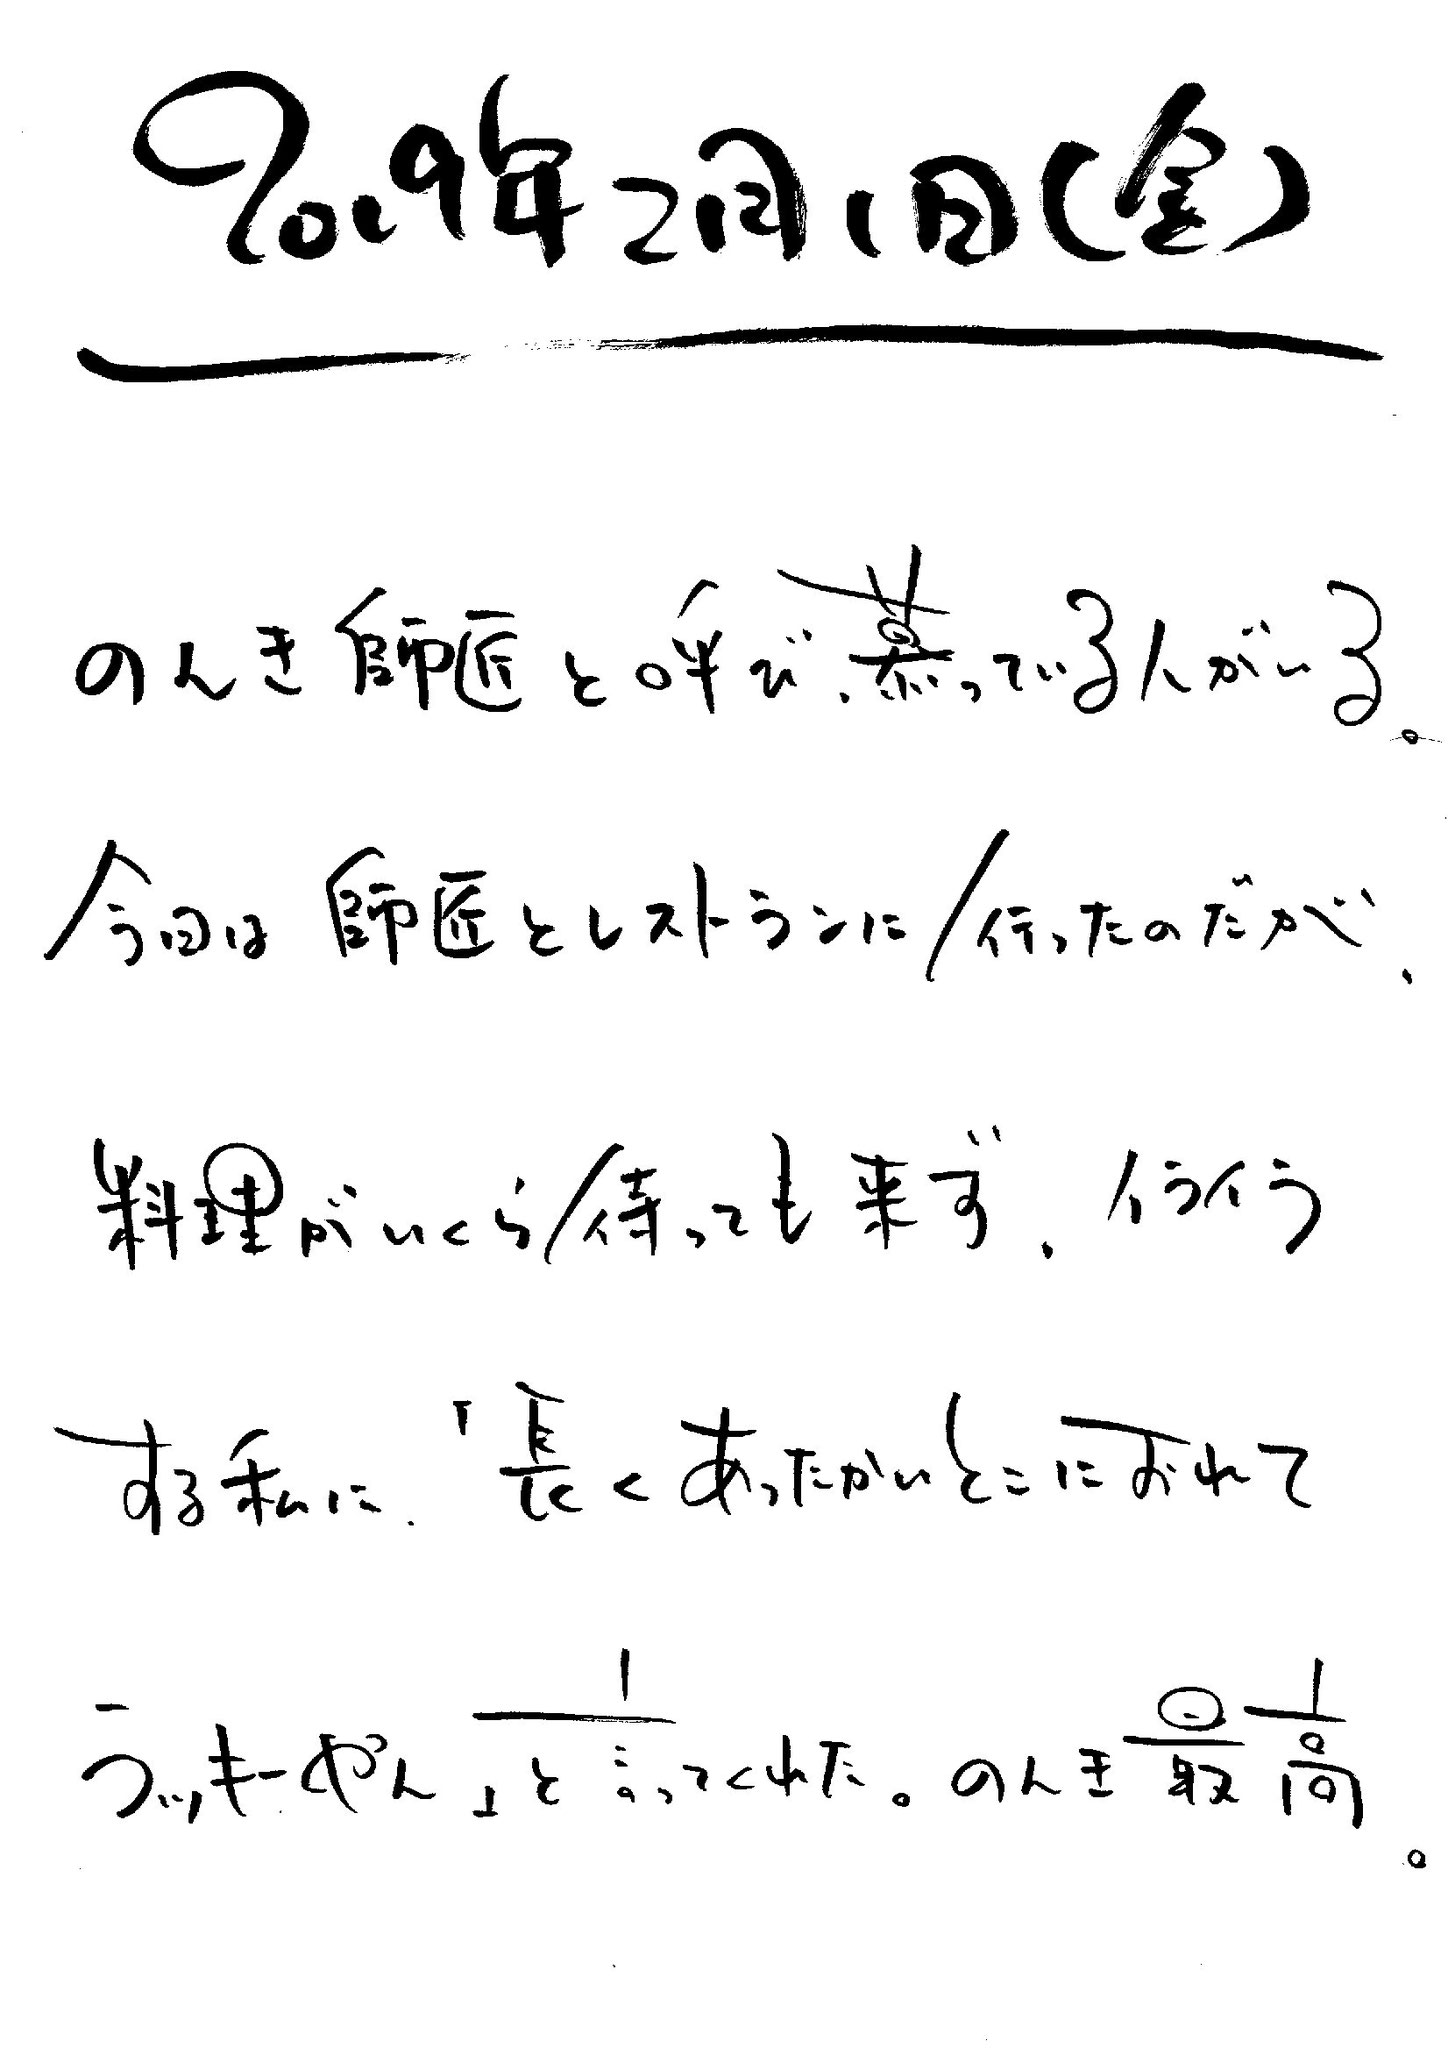 2019年2月1日(金)
のんき師匠と呼び、慕っている人がいる。
今回は師匠とレストランに行ったのだが、
料理がいくら待っても来ず、イライラ
する私に、「長くあったかいとこにおれて
ラッキーやん」と言ってくれた。のんき最高。